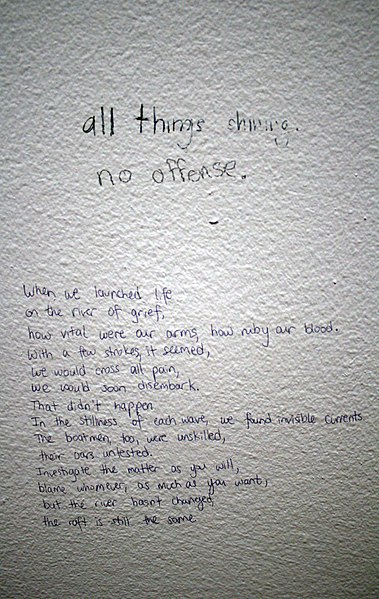 all things shining.
no offense.
When we launched life
on the river of grief,
how vital were our arms, how ruby our blood.
With a few strokes, it seemed,
we would cross all pain,
we would soon disembark.
That didn't happen.
In the stillness of each wave, we found invisible currents
The boatmen, too, were unskilled,
their oars untested.
Investigate the matter as you will,
blame whomever, as much as you want,
but the river hasn't changed,
the raft is still the same